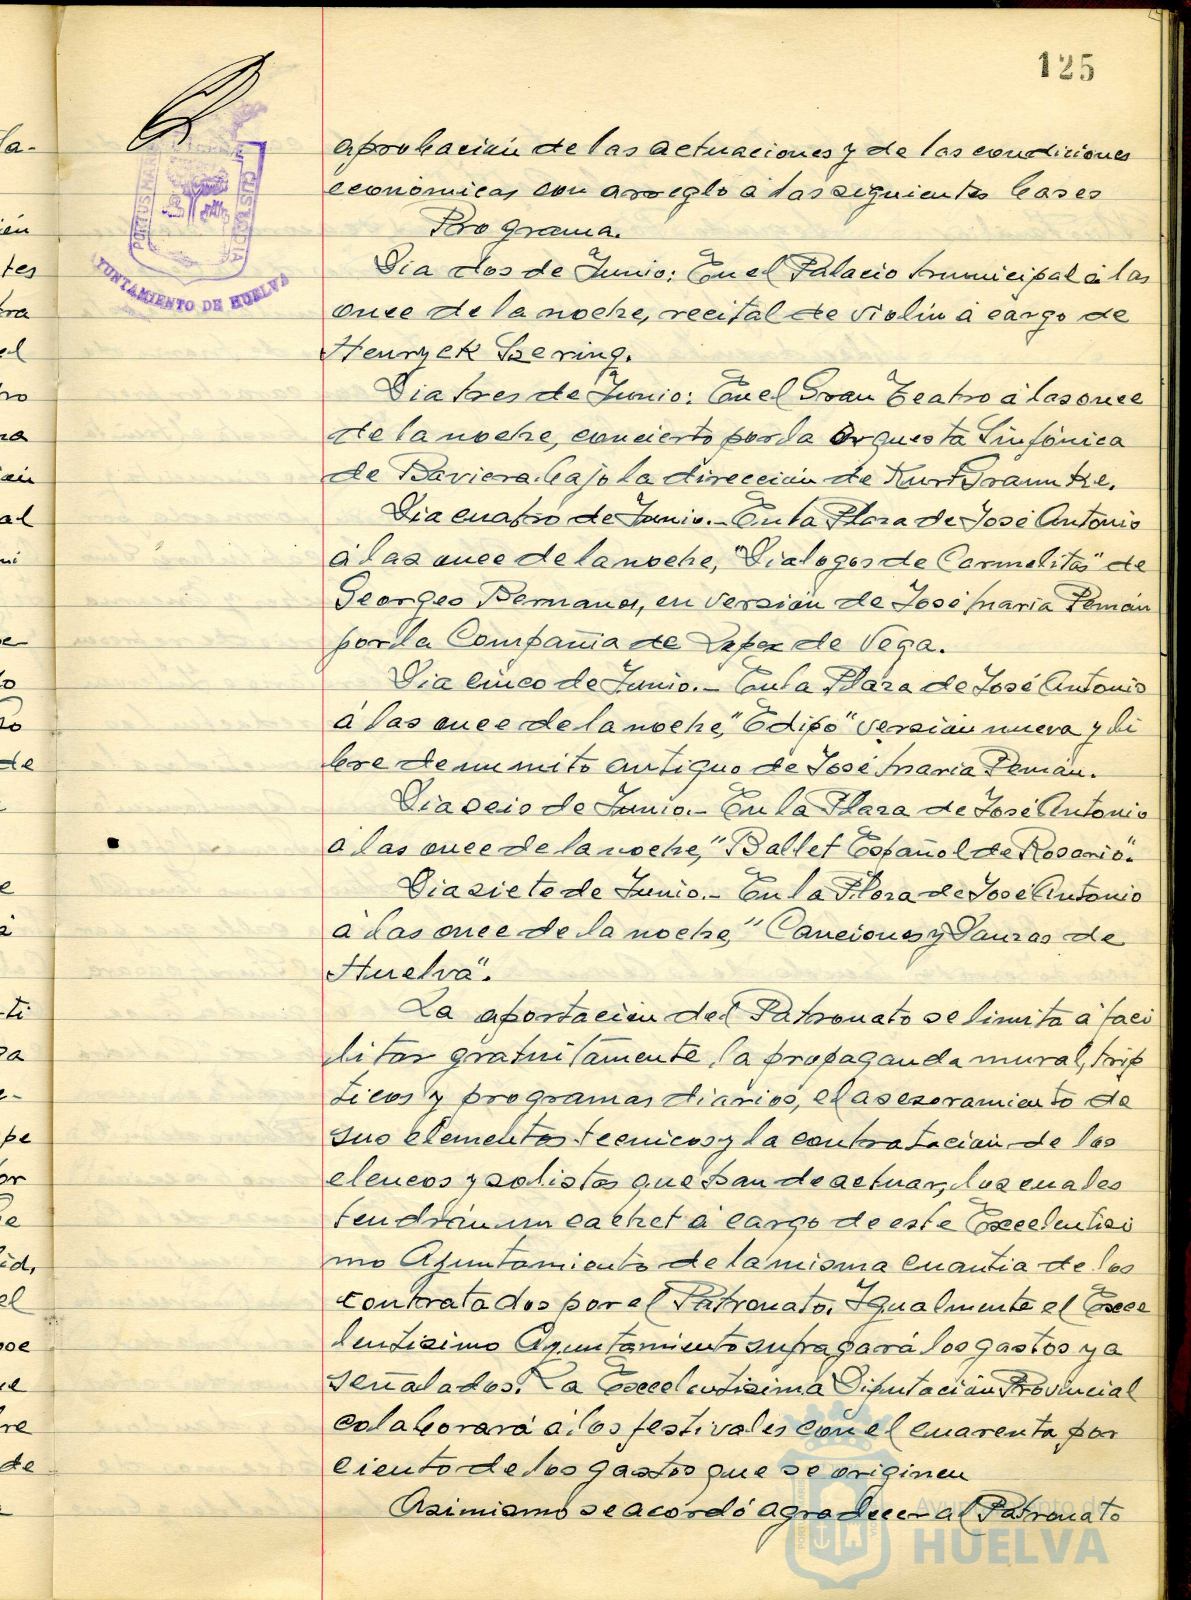 125
PORTUS MARIS
CUSTODIA
AYUNTAMIENTO DE HUELVA
aprobación de las actuaciones y de las condiciones
económicas con arreglo á las siguientes bases
Programa.
Dia dos de Junio: En el Palacio Municipal á las
once de la noche, recital de violín á cargo de
Henryek Szering.
Dia tres de Junio: En el Gran Teatro á las once
de la noche, concierto por la Orquesta Sinfónica
de Baviera bajo la dirección de Kurt Graunke.
Dia cuatro de Junio.- En la Plaza de José Antonio
á las once de la noche, "Dialogos de Carmelitas" de
Georges Bernanos, en versión de José Maria Pemán
por la Compañia de Lopez de Vega.
Dia cinco de Junio.- En la Plaza de José Antonio
á las once de la noche, "Edipo" versión nueva y li
bre de un mito antiguo de José Maria Pemán.
Dia seis de Junio.- En la Plaza de José Antonio
á las once de la noche, "Ballet Español de Rosario".
Dia siete de Junio.- En la Plaza de José Antonio
á las once de la noche, "Canciones y Danzas de
Huelva".
La aportación del Patronato se limita á faci
litar gratuitamente la propaganda mural, trip
ticos y programas diarios, el asesoramiento de
sus elementos tecnicos y la contratación de los
elencos y solistas que han de actuar, los cuales
tendrán un cachet á cargo de este Excelentisi
mo Ayuntamiento de la misma cuantia de los
contratados por el Patronato. Igualmente el Exce
lentisimo Ayuntamiento sufragará los gastos ya
señalados. La Excelentisima Diputación Provincial
colaborará á los festivales con el cuarenta por
ciento de los gastos que se originen
Asimismo se acordó agradecer al Patronato
Ayuntamiento de
HUELVA